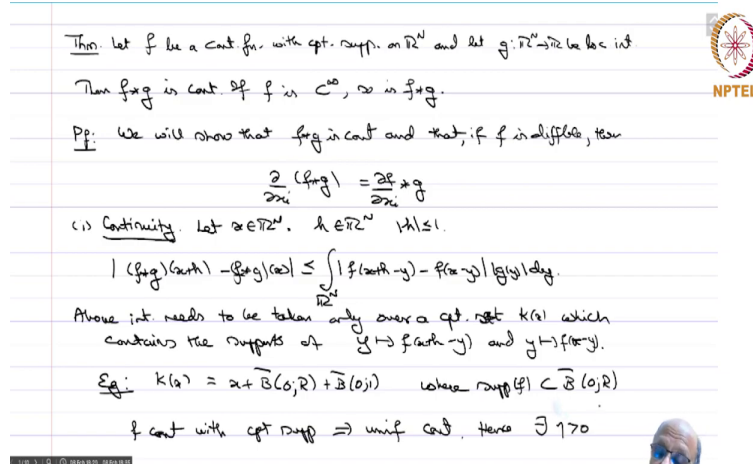 Thm. Let f be a cont. fn. with cpt. supp. on ℝᴺ and let g: ℝᴺ→ℝ be loc int.
Then f*g is cont. If f is C^∞, so is f*g.
NPTEL
Pf: We will show that f*g is cont and that, if f is diffble, then
∂/∂xᵢ (f*g) = ∂f/∂xᵢ * g
(i) Continuity. Let x∈ℝᴺ. h∈ℝᴺ |h|≤1.
|(f*g)(x+h) - (f*g)(x)| ≤ ∫_{ℝᴺ} |f(x+h-y) - f(x-y)| |g(y)| dy.
Above int. needs to be taken only over a cpt. set K(x) which
contains the supports of y↦f(x+h-y) and y↦f(x-y).
Eg: K(x) = x + B̅(0;R) + B̅(0;1) where supp(f) ⊂ B̅(0;R)
f cont with cpt supp ⇒ unif cont. Hence ∃ η>0